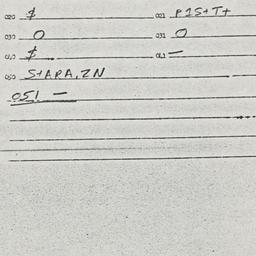 020 $ 021 P1S+T+
030 0 031 0
040 $ 041 —
050 S+ARA, ZN
051 —